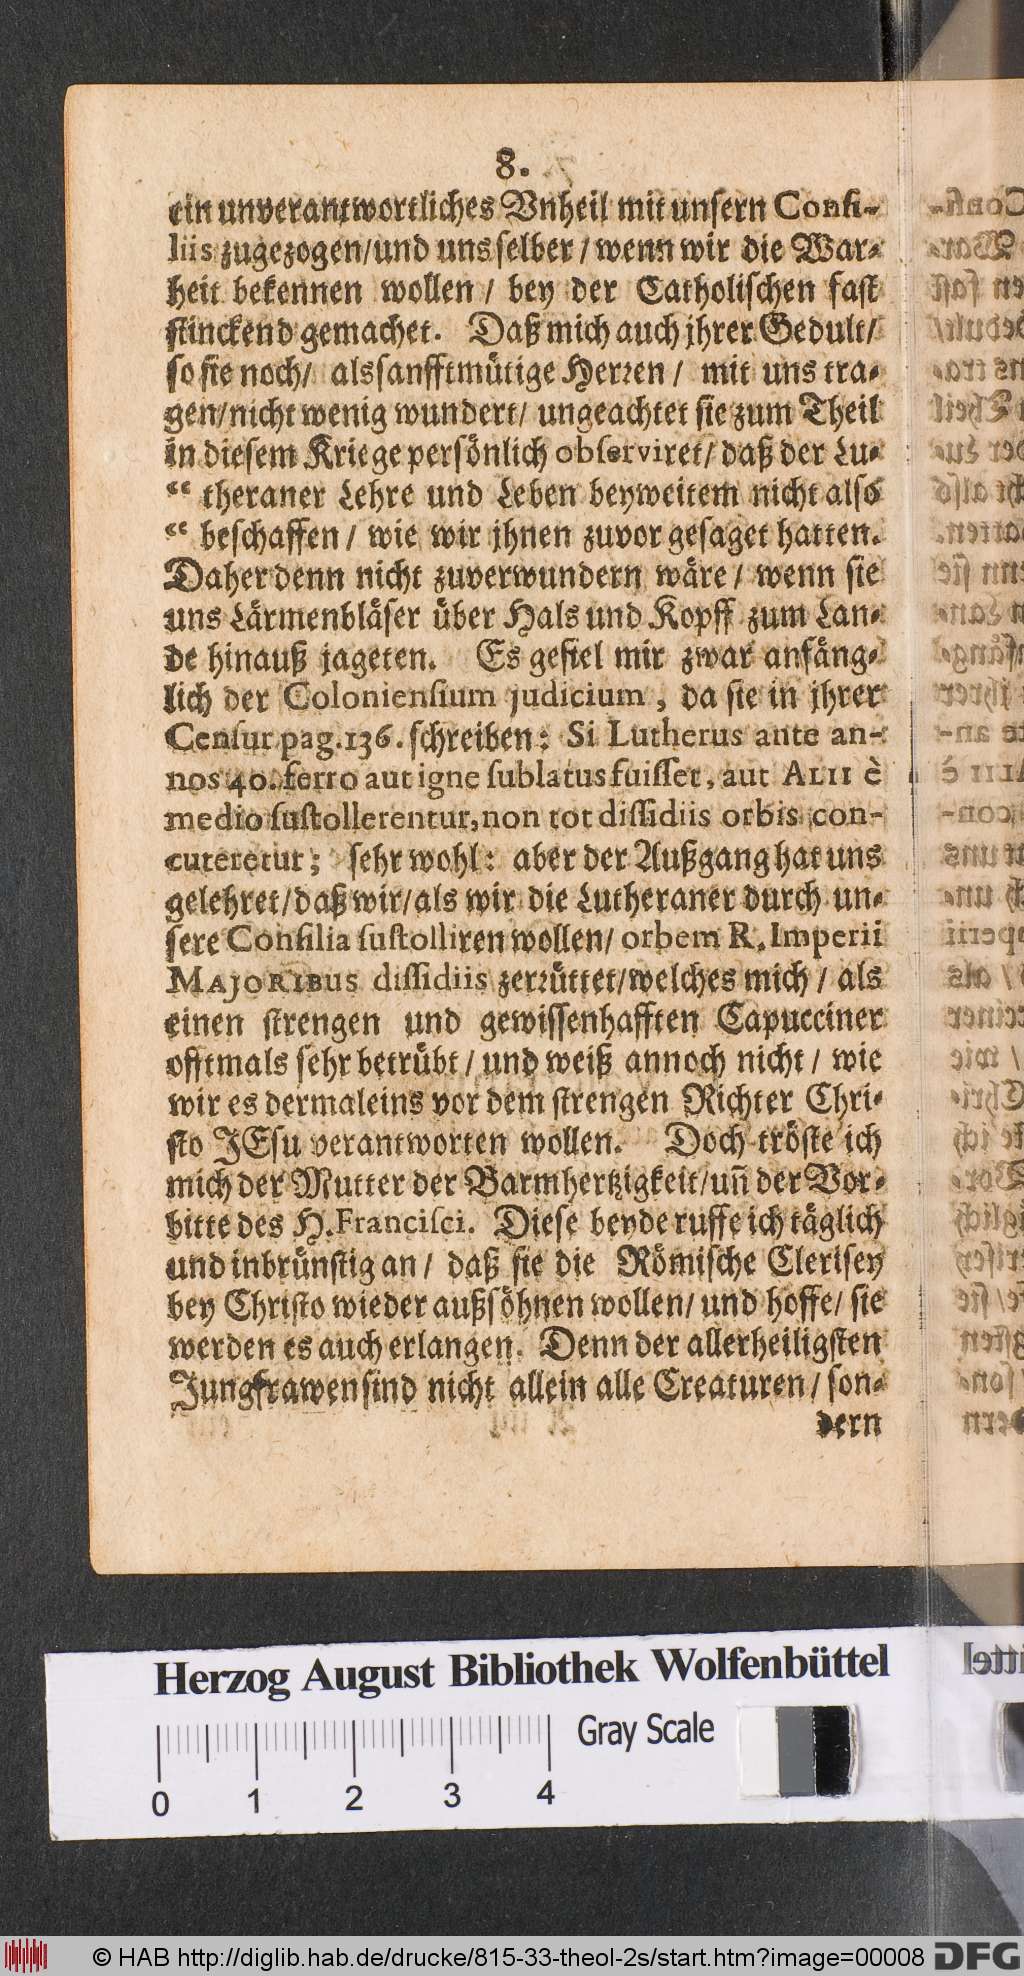 8.
ein unverantwortliches Vnheil mit unsern Consi-
liis zugezogen/und uns selber / wenn wir die War-
heit bekennen wollen / bey der Catholischen fast
stinckend gemachet. Daß mich auch jhrer Gedult/
so sie noch/ als sanfftmütige Herren / mit uns tra-
gen/nicht wenig wundert/ ungeachtet sie zum Theil
in diesem Kriege persönlich observiret/ daß der Lu-
“ theraner Lehre und Leben beyweitem nicht also
“ beschaffen / wie wir jhnen zuvor gesaget hatten.
Daher denn nicht zuverwundern wäre / wenn sie
uns Lärmenbläser über Hals und Kopff zum Lan-
de hinauß jageten. Es gefiel mir zwar anfäng-
lich der Coloniensium judicium, da sie in jhrer
Censur pag. 136. schreiben: Si Lutherus ante an-
nos 40. ferro aut igne sublatus fuisset, aut ALII è
medio sustollerentur, non tot dissidiis orbis con-
cuteretur; sehr wohl: aber der Außgang hat uns
gelehret/daß wir/als wir die Lutheraner durch un-
sere Consilia sustolliren wollen/ orbem R. Imperii
MAJORIBUS dissidiis zerrüttet/welches mich / als
einen strengen und gewissenhafften Capucciner
offtmals sehr betrübt / und weiß annoch nicht / wie
wir es dermaleins vor dem strengen Richter Chri-
sto JEsu verantworten wollen. Doch tröste ich
mich der Mutter der Barmhertzigkeit/uñ der Vor-
bitte des H. Francisci. Diese beyde ruffe ich täglich
und inbrünstig an / daß sie die Römische Clerisey
bey Christo wieder außsöhnen wollen/ und hoffe/ sie
werden es auch erlangen. Denn der allerheiligsten
Jungfrawen sind nicht allein alle Creaturen / son-
dern
Herzog August Bibliothek Wolfenbüttel
Gray Scale
0 1 2 3 4
© HAB http://diglib.hab.de/drucke/815-33-theol-2s/start.htm?image=00008
DFG